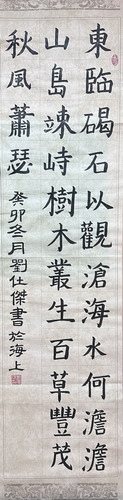 東臨碣石以觀滄海水何澹澹
山島竦峙樹木叢生百草豐茂
秋風蕭瑟
癸卯冬月劉仕傑書於海上